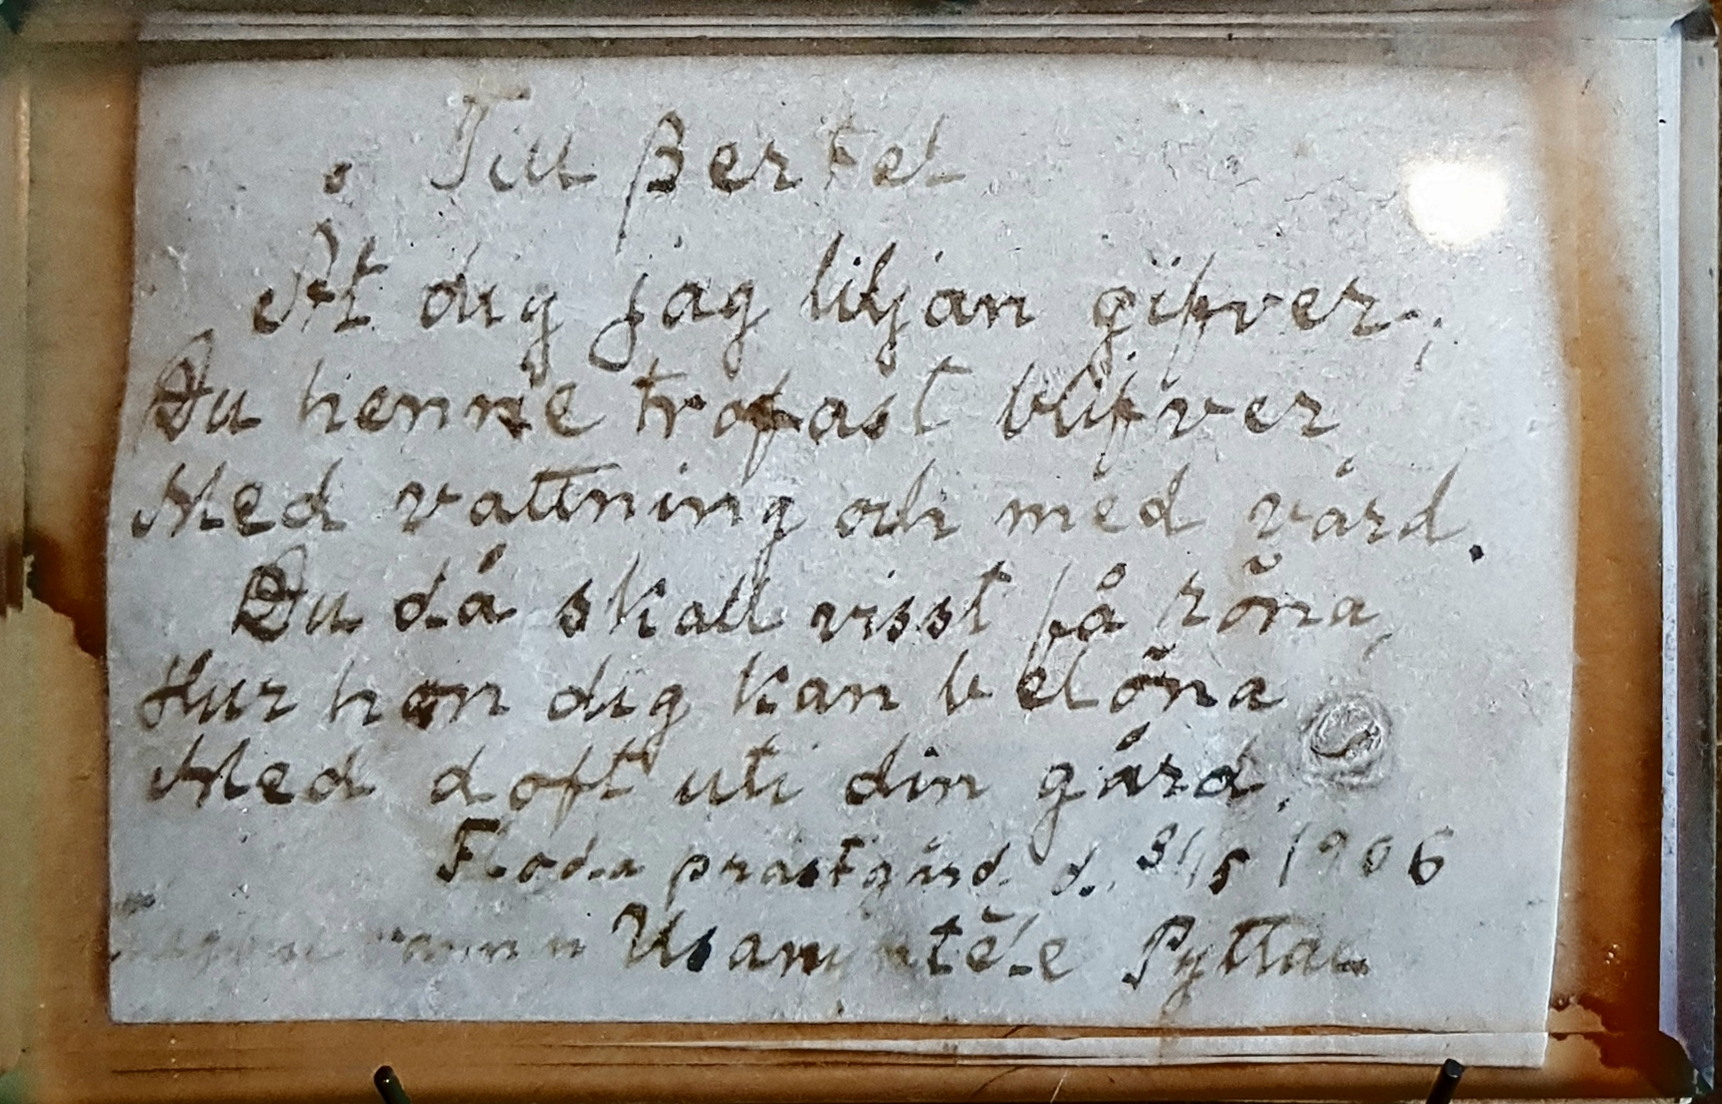 Till Bertel
Åt dig jag liljan gifver,
Du henne trofast blifver
Med vattning och med vård.
Du då skall visst få röna,
Hur hon dig kan belöna
Med doft uti din gård.
Floda prästgård d. 31/5 1906